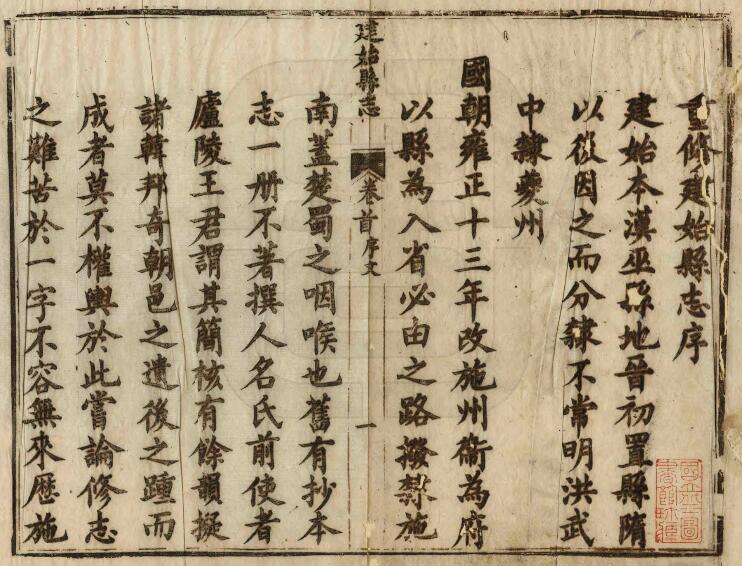 重修建始縣志序
建始本漢巫縣地晉初置縣隋
以後因之而分隸不常明洪武
中隸夔州
國朝雍正十三年改施州衛為府
以縣為入省必由之路撥隸施
建始縣志 卷首序文 一
南蓋楚蜀之咽喉也舊有抄本
志一册不著撰人名氏前使者
廬陵王君謂其簡核有餘韻擬
諸韓邦奇朝邑之遺後之踵而
成者莫不權輿於此嘗論修志
之難苦於一字不容無來歷施